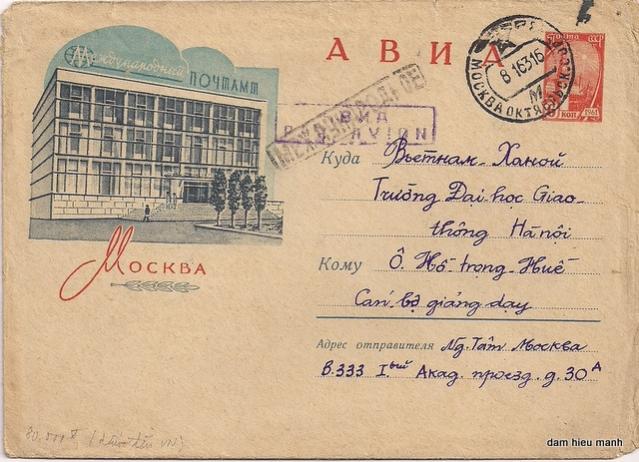 Международный
ПОЧТАМТ
АВИА
ПОЧТА СССР
1961
КОП
8 1 63 16
МОСКВА ОКТЯБРЬСК
М
МЕЖДУНАРОДНОЕ
АВИА
PAR AVION
Куда Вьетнам-Ханой
Trường Đại học Giao-
thông Hà nội
Кому Ô. Hồ trọng Huế
Cán bộ giảng dạy
МОСКВА
Адрес отправителя Ng. Tâm Москва
В.333 Iый Акад. проезд. д. 30А
dam hieu manh